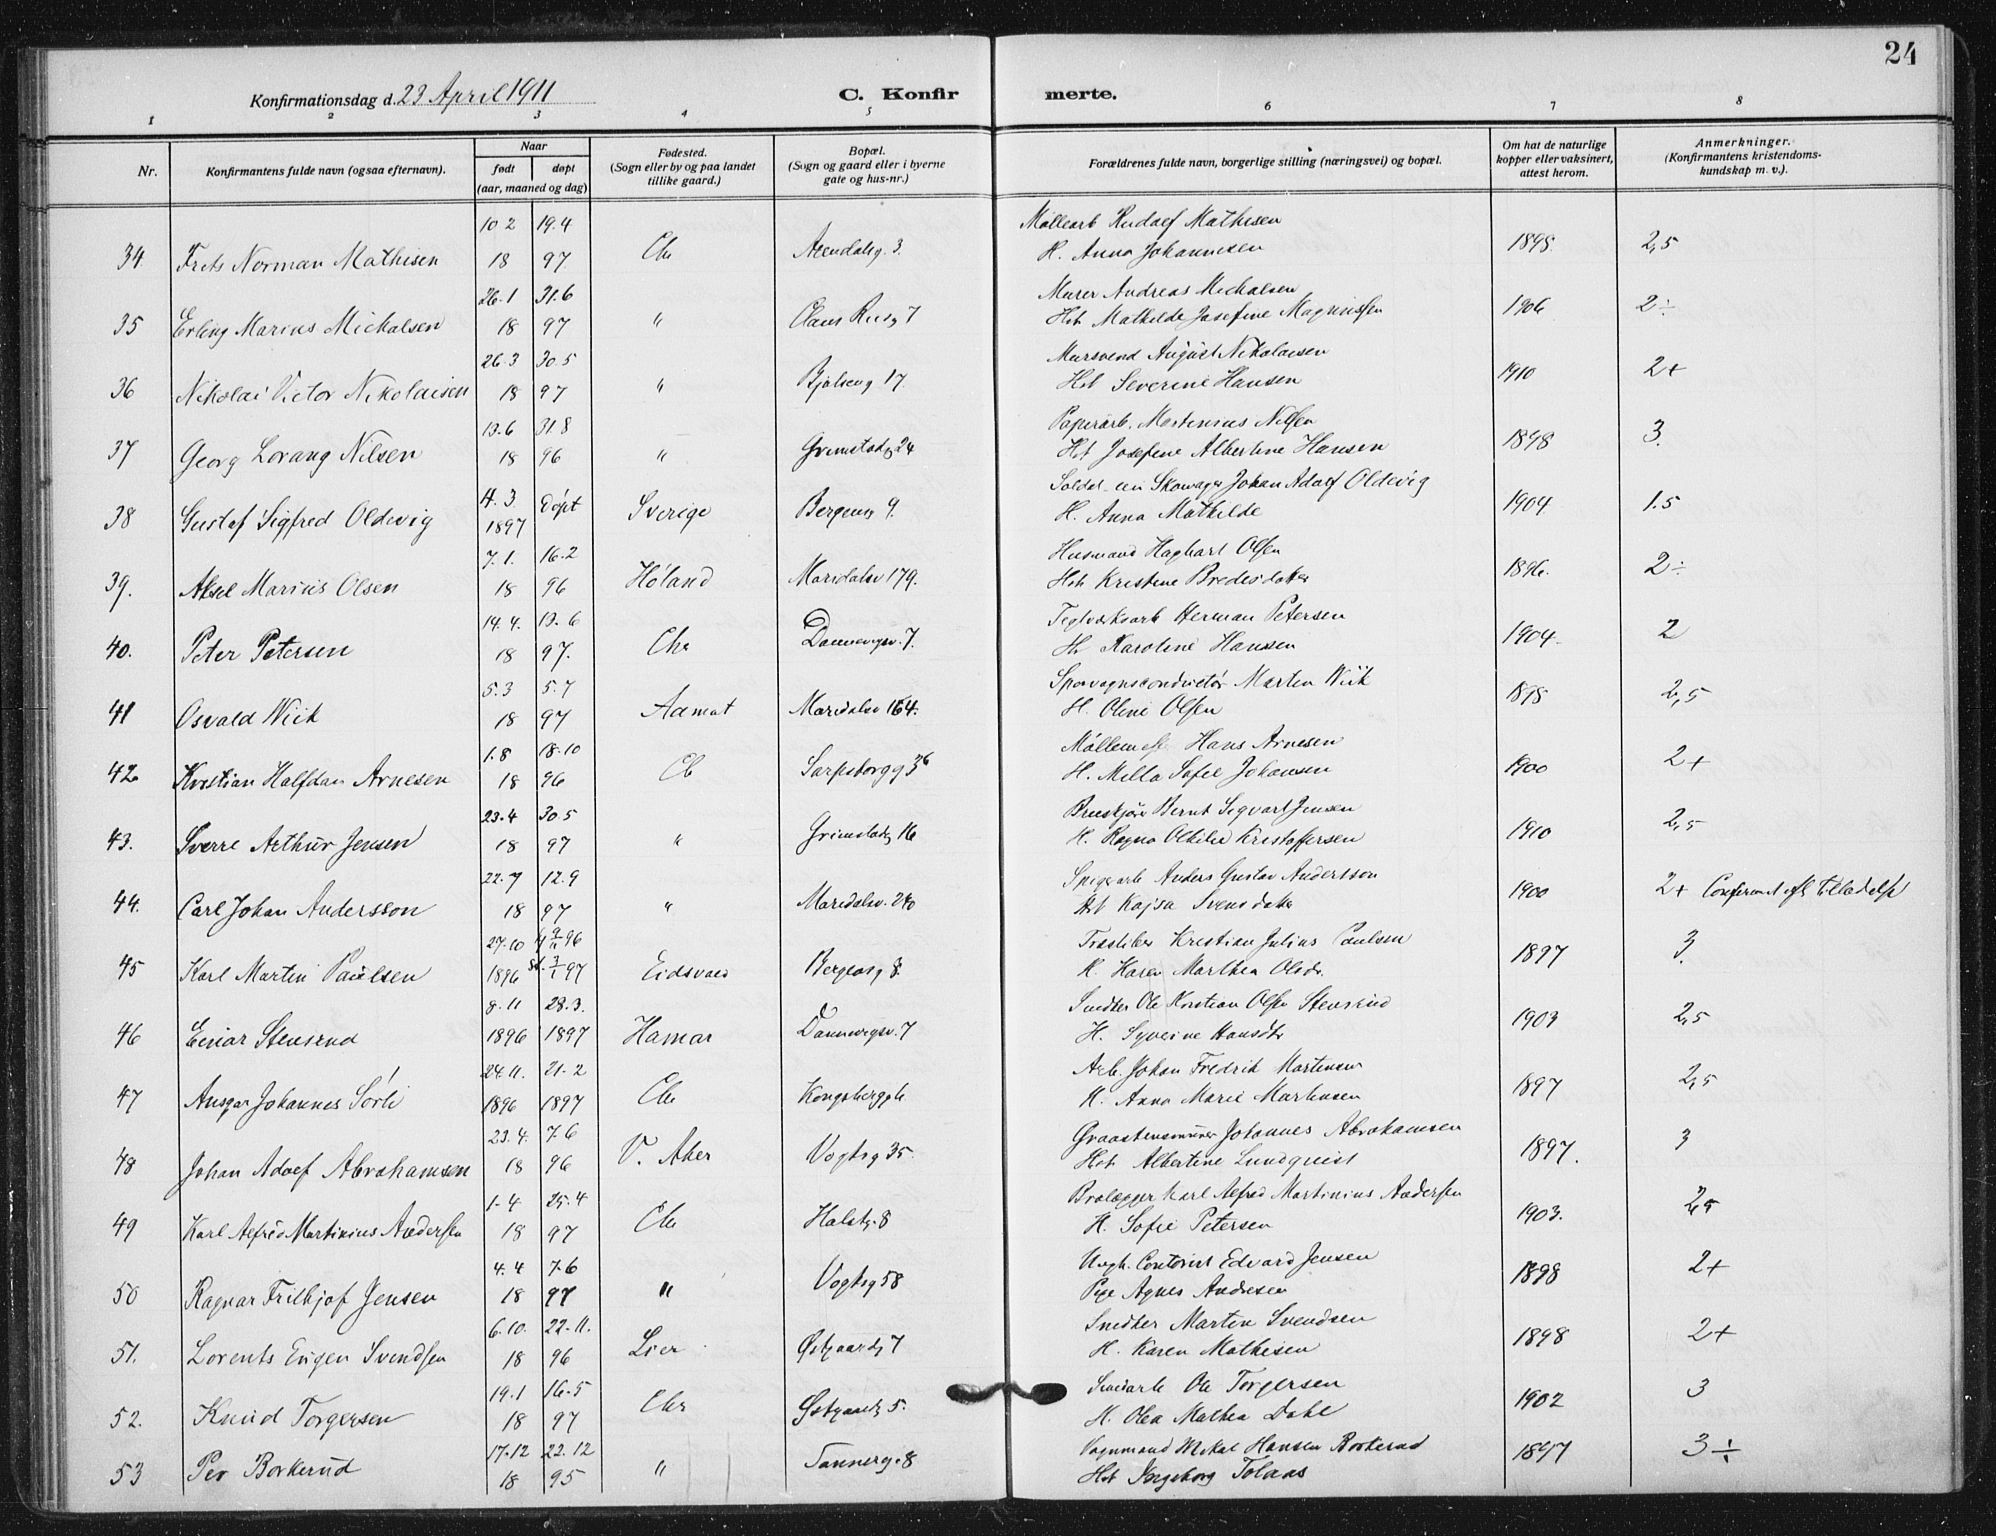 24
Konfirmationsdag d. 23 April 1911 C. Konfirmerte.
1 2 3 4 5 6 7 8
Nr. Konfirmantens fulde navn (ogsaa efternavn). Naar født døpt (aar, maaned og dag) Fødested. (Sogn eller by og paa landet tillike gaard.) Bopæl. (Sogn og gaard eller i byerne gate og hus-nr.) Forældrenes fulde navn, borgerlige stilling (næringsvei) og bopæl. Om hat de naturlige kopper eller vaksinert, attest herom. Anmerkninger. (Konfirmantens kristendomskundskap m. v.).
10 2 19.4 Møllearb Rudolf Mathisen
34. Frets Norman Mathisen 18 97 Chr Arendalsg. 3. H. Anna Johannesen 1898 2,5
26.1 31.6 Murer Andreas Michalsen
35 Erling Marius Michalsen 18 97 " Claus Riisg 7 Hst Mathilde Josefine Magnussen 1906 2÷
26.3 30.5 Mursvend August Nikolaisen
36 Nikolai Victor Nikolaisen 18 97 " Bjølseng 17 Hst Severine Hansen 1910 2+
13.6 31.8 Papirarb. Martinius Nilsen
37 Georg Lorang Nilsen 18 96 " Grimstadg 24 Hst Josefine Albertine Hansen 1898 3.
4.3 døpt Johan Adolf Oldevig
38 Gustaf Sigfred Oldevig 1897 Sverige Bergensg 9. H. Anna Mathilde 1904 1.5
7.1. 16.2 Husmand Haghart Olsen
39. Aksel Marius Olsen 18 96 Høland Maridalsv 179. Hst Kristine Bredesdatter 1896. 2÷
14.4. 13.6 Teglverksarb Herman Petersen
40. Peter Petersen 18 97. Chr Dannevigsv. 7. H Karoline Hansen 1904 2
5.3 5.7 Sporvagnsconductør Marten Wiik
41 Osvald Wiik 18 97 Aamot Maridalsv 164. H. Oline Olsen 1898 2,5
1.8 18.10 Hans Arnesen
42 Kristian Halfdan Arnesen 18 96 Ch Sarpsborgg 36 H. Milla Sofie Johansen 1900 2+
23.4 30.5 Bernt Sigvart Jensen
43. Sverre Arthur Jensen 18 97 " Grimstadg 16 H. Ragna Otilie Kristoffersen 1910 2,5
22.7 12.9 Spigerarb Anders Gustav Andersson
44. Carl Johan Andersson 18 97 " Maridalsv. 240 Hst Kajsa Svensdatter 1900 2+ Confirmert eft. tilladelse
27.10 Kristian Julius Paulsen
45 Karl Martin Paulsen 1896 Eidsvold Bergensg 8. H. Karen Marthea Olsdr. 1897 3.
8.11 28.3. Snedker Ole Kristian Olsen Stensrud
46 Einar Stensrud 1896 1897 Hamar Dannevigsv. 7 H. Syverine Hansdtr 1903 2,5
24.11. 21.2 Arb. Johan Fredrik Martinsen
47 Ansgar Johannes Sørli 1896 1897 Chr H. Anna Marie Martinsen 1897 2,5
23.4. 7.6 Johannes Abrahamsen
48 Johan Adolf Abrahamsen 18 96 V. Aker Vogtsg 35. Hst Albertine Lundquist 1897. 3
1.4 25.4 Brolægger Karl Alfred Martinius Andersen
49 Karl Alfred Martinius Andersen 18 97 Chr Holstg. 8 H. Sofie Petersen 1903. 2,5
4.4 7.6 Ungk. Contorist Edvard Jensen
50 Ragnar Frithjof Jensen 18 97 " Vogtsg 58 Pige Agnes Andresen 1898 2+
6.10. 22.11. Snedker Martin Svendsen
51. Lorents Eugen Svendsen 18 96 Lier Østgaardsg 7 H. Karen Mathisen 1898 2+
19.1 16.5 Ole Torgersen
52. Knud Torgersen 18 97 Chr Østgaardsg 5. H. Olea Mathea Dahl 1902 3
17.12 22.12 Vognmand Mikal Hansen Borkerud
53 Per Borkerud 18 95 " Vannerg. 8 Hst Ingeborg Tolaas 1897 3÷